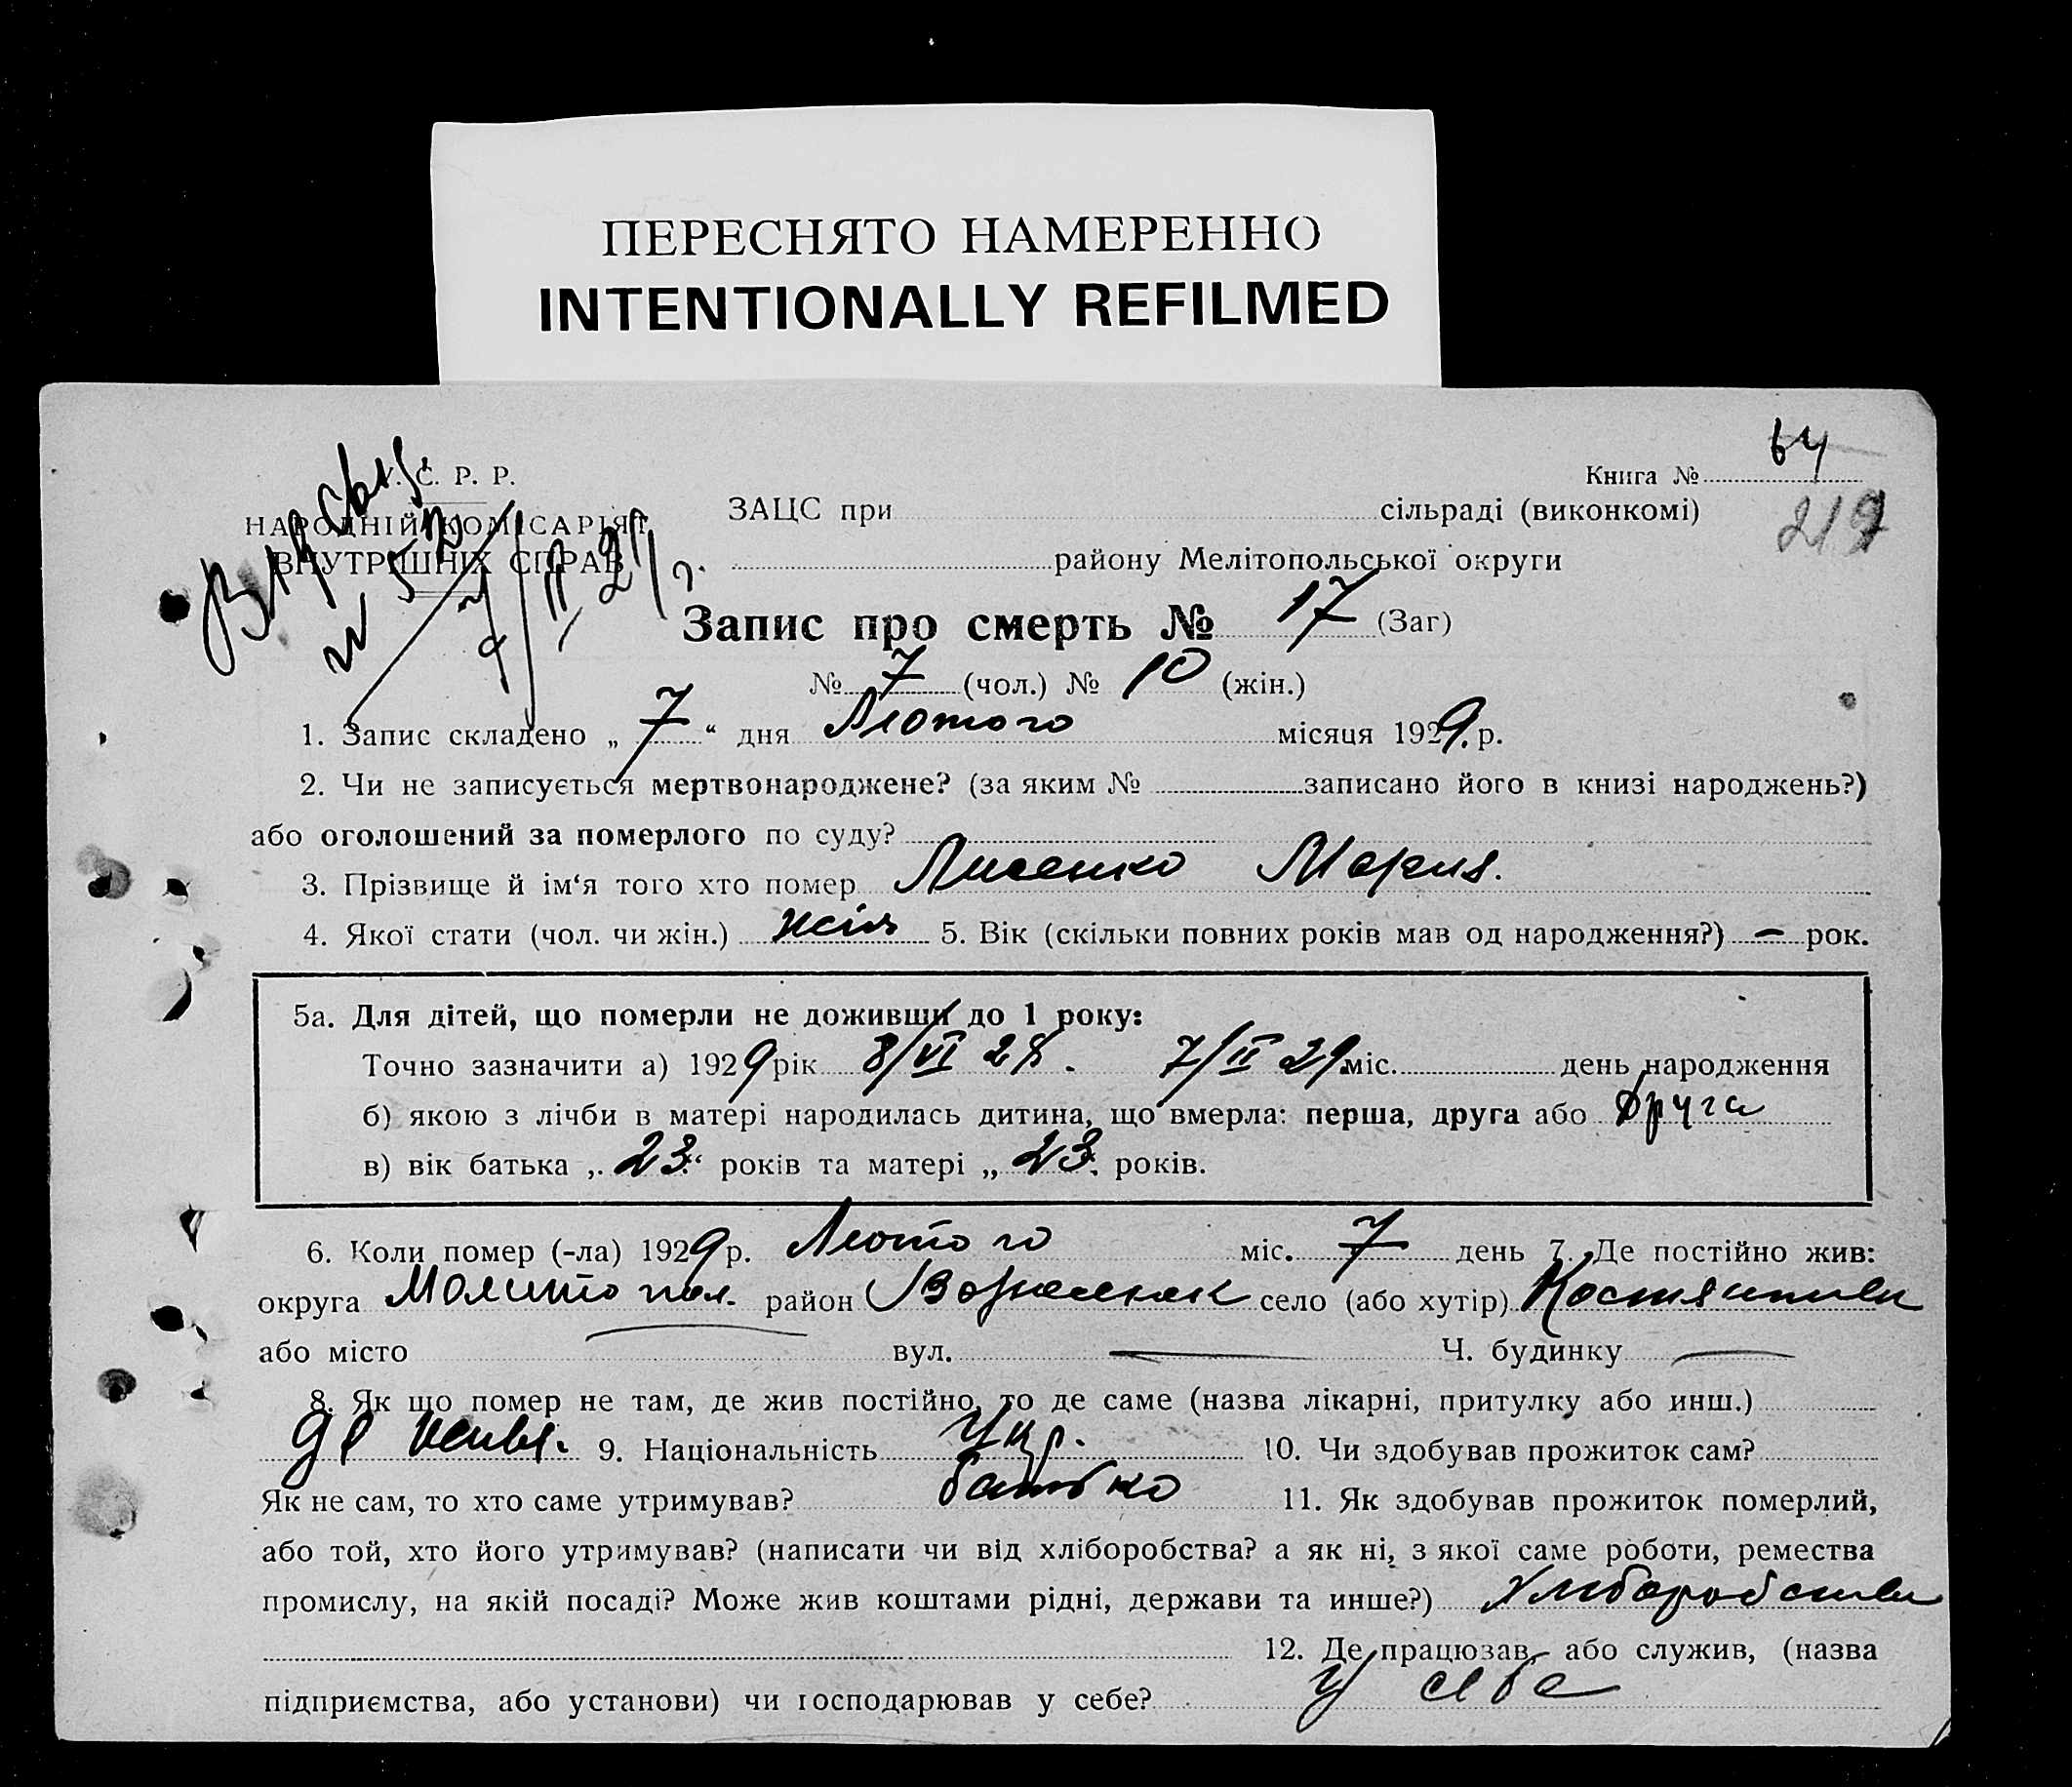 ПЕРЕСНЯТО НАМЕРЕННО
INTENTIONALLY REFILMED
У. С. Р. Р.
НАРОДНІЙ КОМІСАРІЯТ
ВНУТРІШНІХ СПРАВ
Книга № 64
219
ЗАЦС при сільраді (виконкомі)
району Мелітопольської округи
Запис про смерть № 17 (Заг)
№ 7 (чол.) № 10 (жін.)
1. Запис складено „ 7 “ дня Лютого місяця 1929. р.
2. Чи не записується мертвонароджене? (за яким № записано його в книзі народжень?)
або оголошений за померлого по суду?
3. Прізвище й ім‘я того хто помер Лисенко Мария.
4. Якої стати (чол. чи жін.) жін 5. Вік (скільки повних років мав од народження?) — рок.
5а. Для дітей, що померли не доживши до 1 року:
Точно зазначити а) 1929 рік 8/VI 28. 7/II 29 міс. день народження
б) якою з лічби в матері народилась дитина, що вмерла: перша, друга або друга
в) вік батька „ 23 “ років та матері „ 23. років.
6. Коли помер (-ла) 1929 р. Лютого міс. 7 день 7. Де постійно жив:
округа район село (або хутір)
або місто — вул. — Ч. будинку —
8. Як що помер не там, де жив постійно, то де саме (назва лікарні, притулку або инш.)
де 9. Національність Укр. 10. Чи здобував прожиток сам?
Як не сам, то хто саме утримував? батько 11. Як здобував прожиток померлий,
або той, хто його утримував? (написати чи від хліборобства? а як ні, з якої саме роботи, ремества
промислу, на якій посаді? Може жив коштами рідні, держави та инше?) хліборобства
12. Де працюзав або служив, (назва
підприємства, або установи) чи господарював у себе? у себе